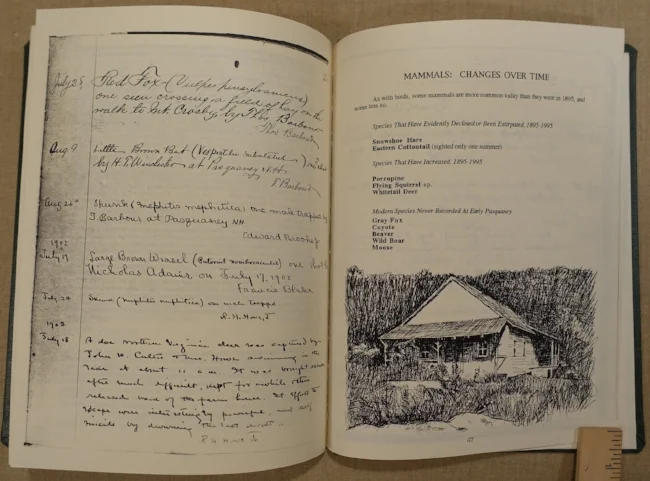 July 25 Red Fox (Vulpes pensylvanicus)
one seen crossing a field of hay on the
walk to Mt. Crosby, by Thos. Barbour
Thos Barbour
Aug. 9 Little Brown Bat (Vespertilio subulatus)
by H. at Pasquaney N.H.
T Barbour
Aug 26 Skunk (Mephitis mephitica) one male trapped by
T. Barbour at Pasquaney NH
Edward Brooks
1902
July 17 Large Brown Weasel (Putorius noveboracensis) one shot by
Nicholas Adams on July 17, 1902
Francis Blake
July 24 Skunk (Mephitis mephitica) one male trapped
July 18 A doe northern Virginia deer was captured by
John W. Cutler swimming in the
at about 11 a.m. It was brought
after much difficulty, kept for awhile then
released back of the farm house. Its efforts to
escape were interestingly powerful, and
by drowning the last
MAMMALS: CHANGES OVER TIME
As with birds, some mammals are more common today than they were in 1895, and
some less so.
Species That Have Evidently Declined or Been Extirpated, 1895-1995
Snowshoe Hare
Eastern Cottontail (sighted only one summer)
Species That Have Increased, 1895-1995
Porcupine
Flying Squirrel sp.
Whitetail Deer
Modern Species Never Recorded At Early Pasquaney
Gray Fox
Coyote
Beaver
Wild Boar
Moose